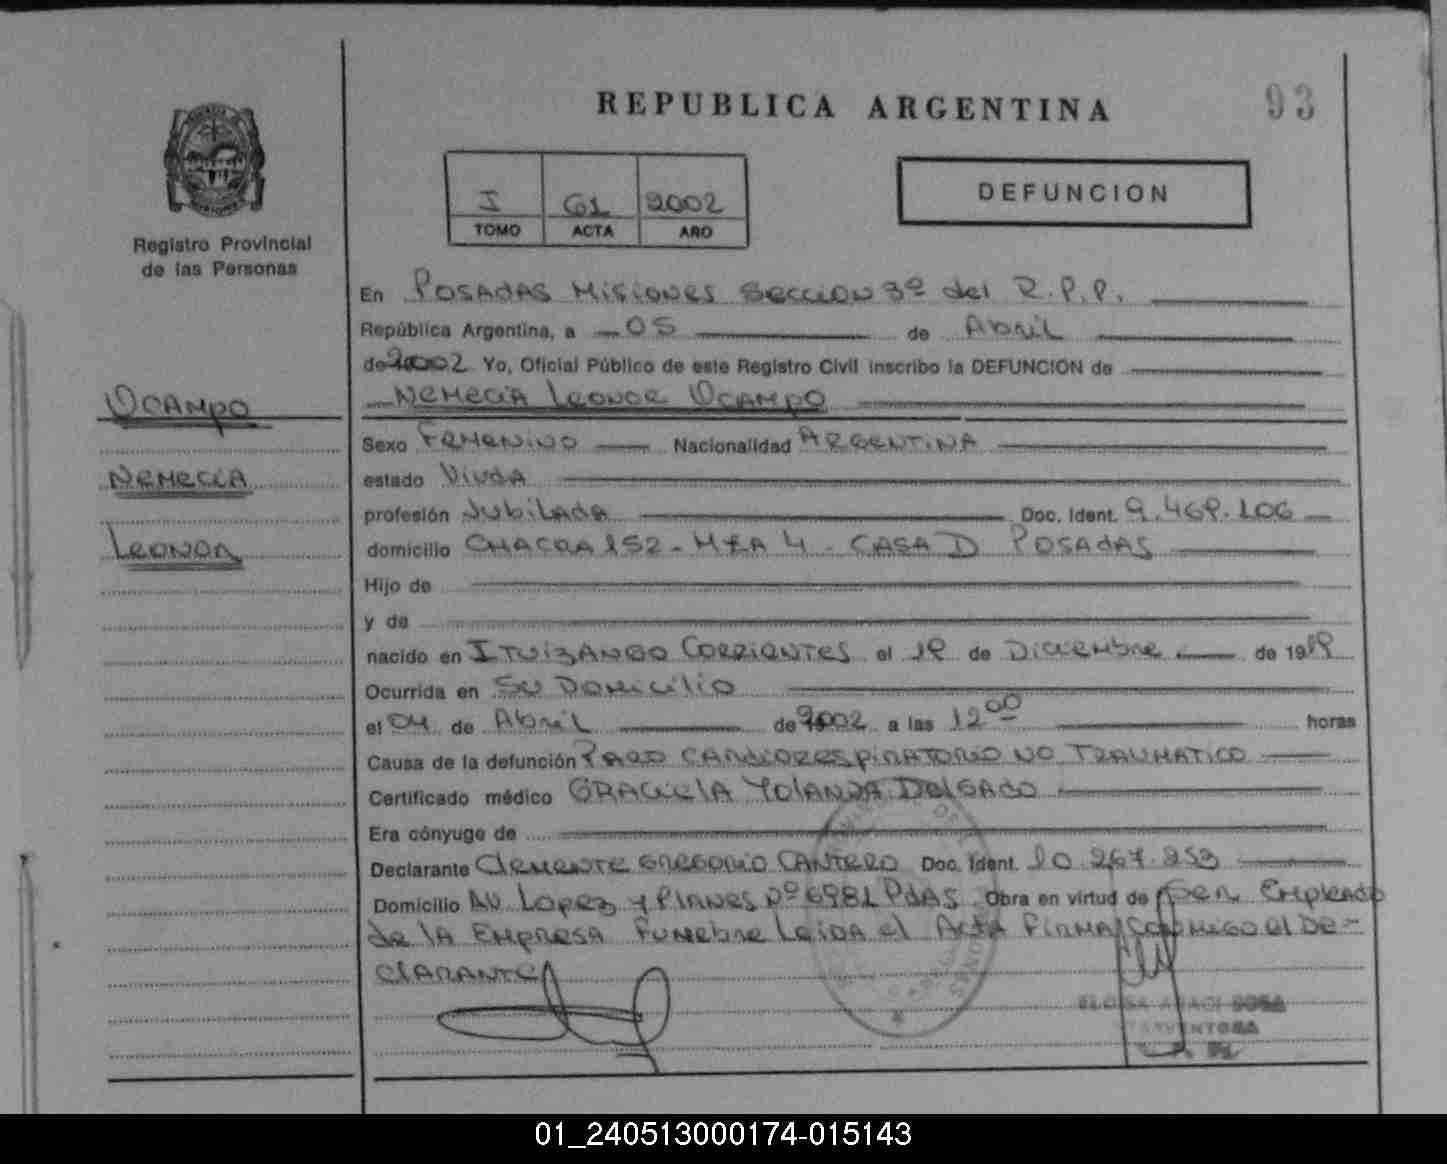 REPUBLICA ARGENTINA
93
I 61 2002
TOMO ACTA AÑO
DEFUNCION
Registro Provincial
de las Personas
En Posadas Misiones Seccion 3º del R.P.P.
República Argentina, a 05 de Abril
de 2002 Yo, Oficial Público de este Registro Civil inscribo la DEFUNCION de
Ocampo
Nemecia Leonor Ocampo
Sexo Femenino Nacionalidad Argentina
Nemecia
estado Viuda
profesión Jubilada Doc. Ident.
Leonor
domicilio CHACRA 152 - MZA 4 - CASA D POSADAS
Hijo de
y de
nacido en Ituizango Corrientes el de Diciembre de 19
Ocurrida en Su Domicilio
el 04 de Abril de 2002 a las 12 00 horas
Causa de la defunción Paro cardiorespiratorio no traumatico
Certificado médico GRACIELA YOLANDA DELGADO
Era cónyuge de
Declarante Clemente Gregorio Cantero Doc. Ident. 10.267.253
Domicilio Av. Lopez y Planes Nº 6981 Pdas Obra en virtud de Ser Empleado
de la Empresa Funebre Leida el Acta firma conmigo el De-
clarante
ELOISA SOSA
01_240513000174-015143